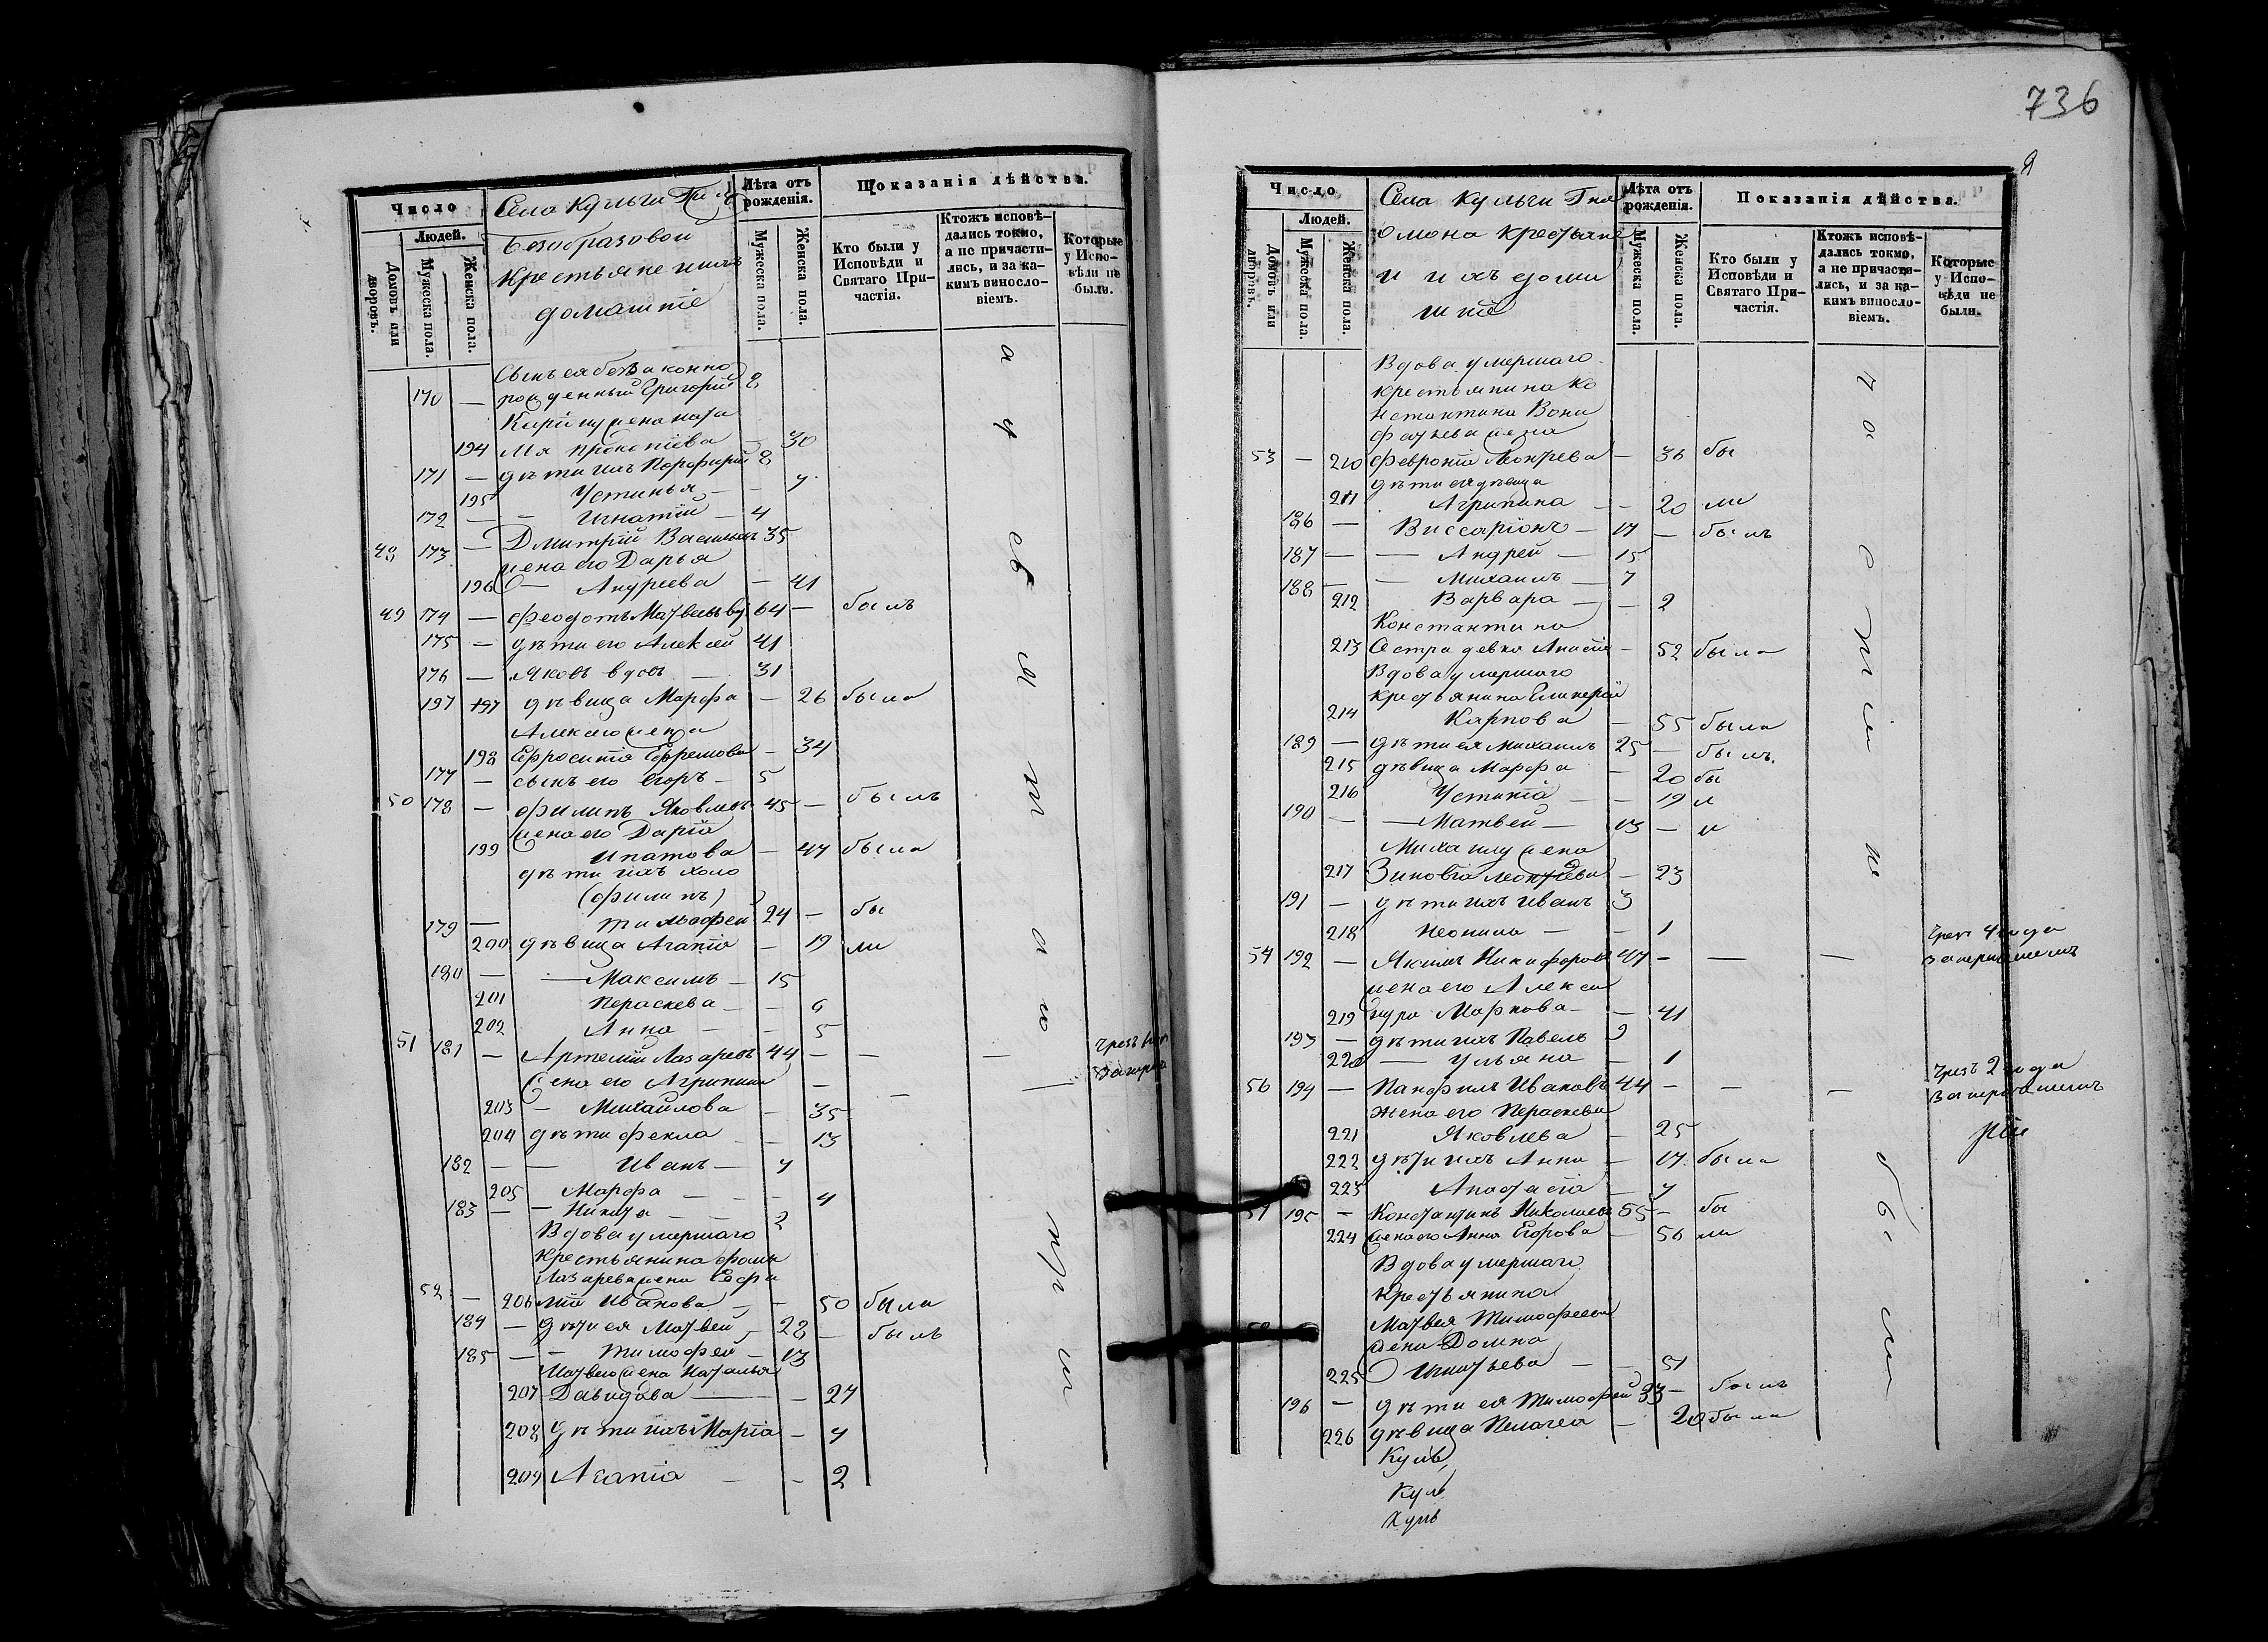 Число
Села Кульги Г-жи
Лѣта отъ рожденія.
Показанія дѣйства.
Людей.
Домовъ или дворовъ.
Мужеска пола.
Женска пола.
Безобразовой
крестьяне ихъ
домашніе
Мужеска пола.
Женска пола.
Кто были у Исповѣди и Святаго Причастія.
Ктожъ исповѣдались токмо, а не причастились, и за какимъ винословіемъ.
Которые у Исповѣди не были.
Сынъ ея беззаконно
170 — рожденный Григорій 8
194 Прокопіева — 30
171 — дѣти ихъ Порфирій 8
195 Устинья — — 7
172 — — Игнатій — 4
48 173 — Дмитрій Васильевъ 35
жена его Дарья
196 Андреева — 41
49 174 — Феодотъ Матвеевъ вд 64 — былъ
175 — дѣти его Алексей 41
176 — Яковъ вдовъ — 31
197 197 дѣвица Марфа — 26 была
Алексея жена
198 Ефросинія Ефремова — 34
177 — сынъ его Егоръ — 5
50 178 — Филипъ Яковлевъ 45 — былъ
жена его Дарія
199 Ипатова — 47 была
дѣти ихъ холо
(Филипъ)
179 — Тимофей 24 — бы
200 дѣвица Агапія — 19 ли
180 — — Максимъ — 15
201 Пераскева — — 6
202 Анна — — 5
51 181 — Артемій Лазаревъ 44 — — —
жена его Агрипина —
203 — Михайлова — 35
204 дѣти Фекла — — 13
182 — — Иванъ — 7
205 — Марфа — — — 4
183 — — Никита — — 2
Вдова умершаго
крестьянина Фомы
Лазарева жена Евфи
52 — 206 мія Иванова — — 50 была
184 — дѣти ея Матвей — 28 — былъ
185 — — Тимофей — 13
Матвея жена Наталья
207 Давидова — — 27
208 дѣти ихъ Марія — 4
209 Агапія — — 2
736
Число
Села Кульги Гна
Лѣта отъ рожденія.
Показанія дѣйства.
Людей.
Домовъ или дворовъ.
Мужеска пола.
Женска пола.
крестьяне
и ихъ дома
шніе
Мужеска пола.
Женска пола.
Кто были у Исповѣди и Святаго Причастія.
Ктожъ исповѣдались токмо, а не причастились, и за какимъ винословіемъ.
Которые у Исповѣди не были.
Вдова умершаго
крестьянина Ко
нстантина Вони
фатьева жена
53 — 210 Февронія — 36 бы
дѣти ея дѣвица
211 Агрипина — — 20 ли
186 — Виссаріонъ — 17 — былъ
187 — — Андрей — 15
188 — — Михаилъ — 7
212 Варвара — — 2
Константина
213 Сестра девка — 52 была
Вдова умершаго
крестьянина
214 Карпова — 55 была
189 — дѣти ея Михаилъ 25 — былъ.
215 дѣвица Марфа — 20 бы
216 Устинія — — 19 л
190 — — Матвей — 13 — и
Михаилу жена
217 Зиновія Леонтьева — 23
191 — дѣти ихъ Иванъ 3
218 Неонила — — 1
54 192 — Якимъ Никифоровъ 47 — — — Чрезъ 4 года
жена его Алексан
219 дра Маркова — — 41
193 — дѣти ихъ Павелъ 9
220 — Ульяна — 1
56 194 — Панфилъ Ивановъ 44 — — — Чрезъ 2 года
жена его Пераскева
221 Яковлева — 25
222 дѣти ихъ Анна — 17 была
223 Анастасія — 7
57 195 — Константинъ Николаевъ 55 — бы
224 жена его Анна Егорова — 56 ли
Вдова умершаго
крестьянина
Матвея Тимофеева
жена Домна
225 Игнатьева — — 51
196 — дѣти ея Тимофей 33 — былъ
226 дѣвица Пелагея — 20 была
Куль,
Куль
Куль